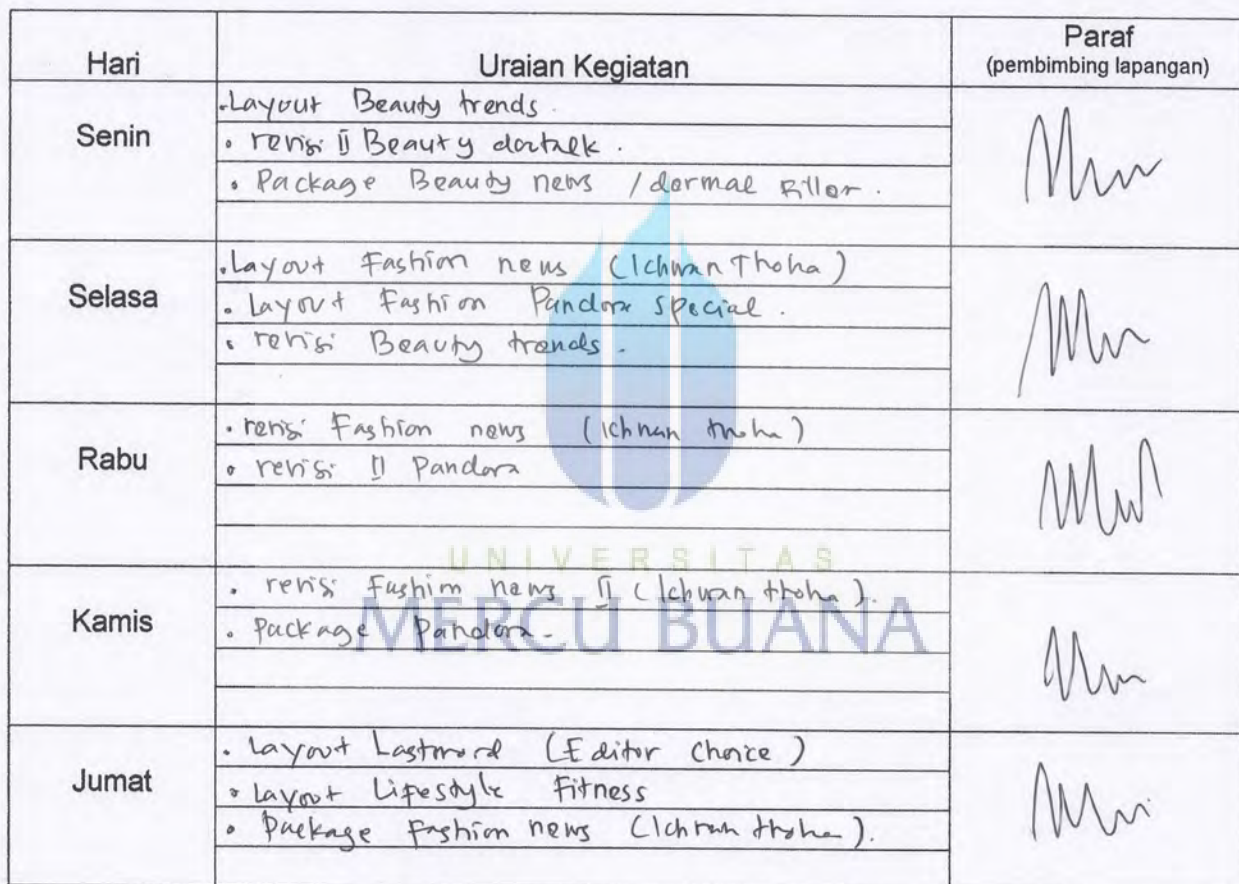 Hari Uraian Kegiatan Paraf
(pembimbing lapangan)
Senin
• Layout Beauty trends.
• revisi II Beauty doctalk.
• Package Beauty news / dermal filler.
Selasa
• Layout Fashion news (Ichwan Thoha)
• Layout Fashion Pandora special.
• revisi Beauty trends.
Rabu
• revisi Fashion news (Ichwan thoha)
• revisi II Pandora
UNIVERSITAS
MERCU BUANA
Kamis
• revisi Fashion news II (Ichwan thoha).
• Package Pandora.
Jumat
• Layout Lastword (Editor choice)
• Layout Lifestyle Fitness
• Package Fashion news (Ichwan thoha).